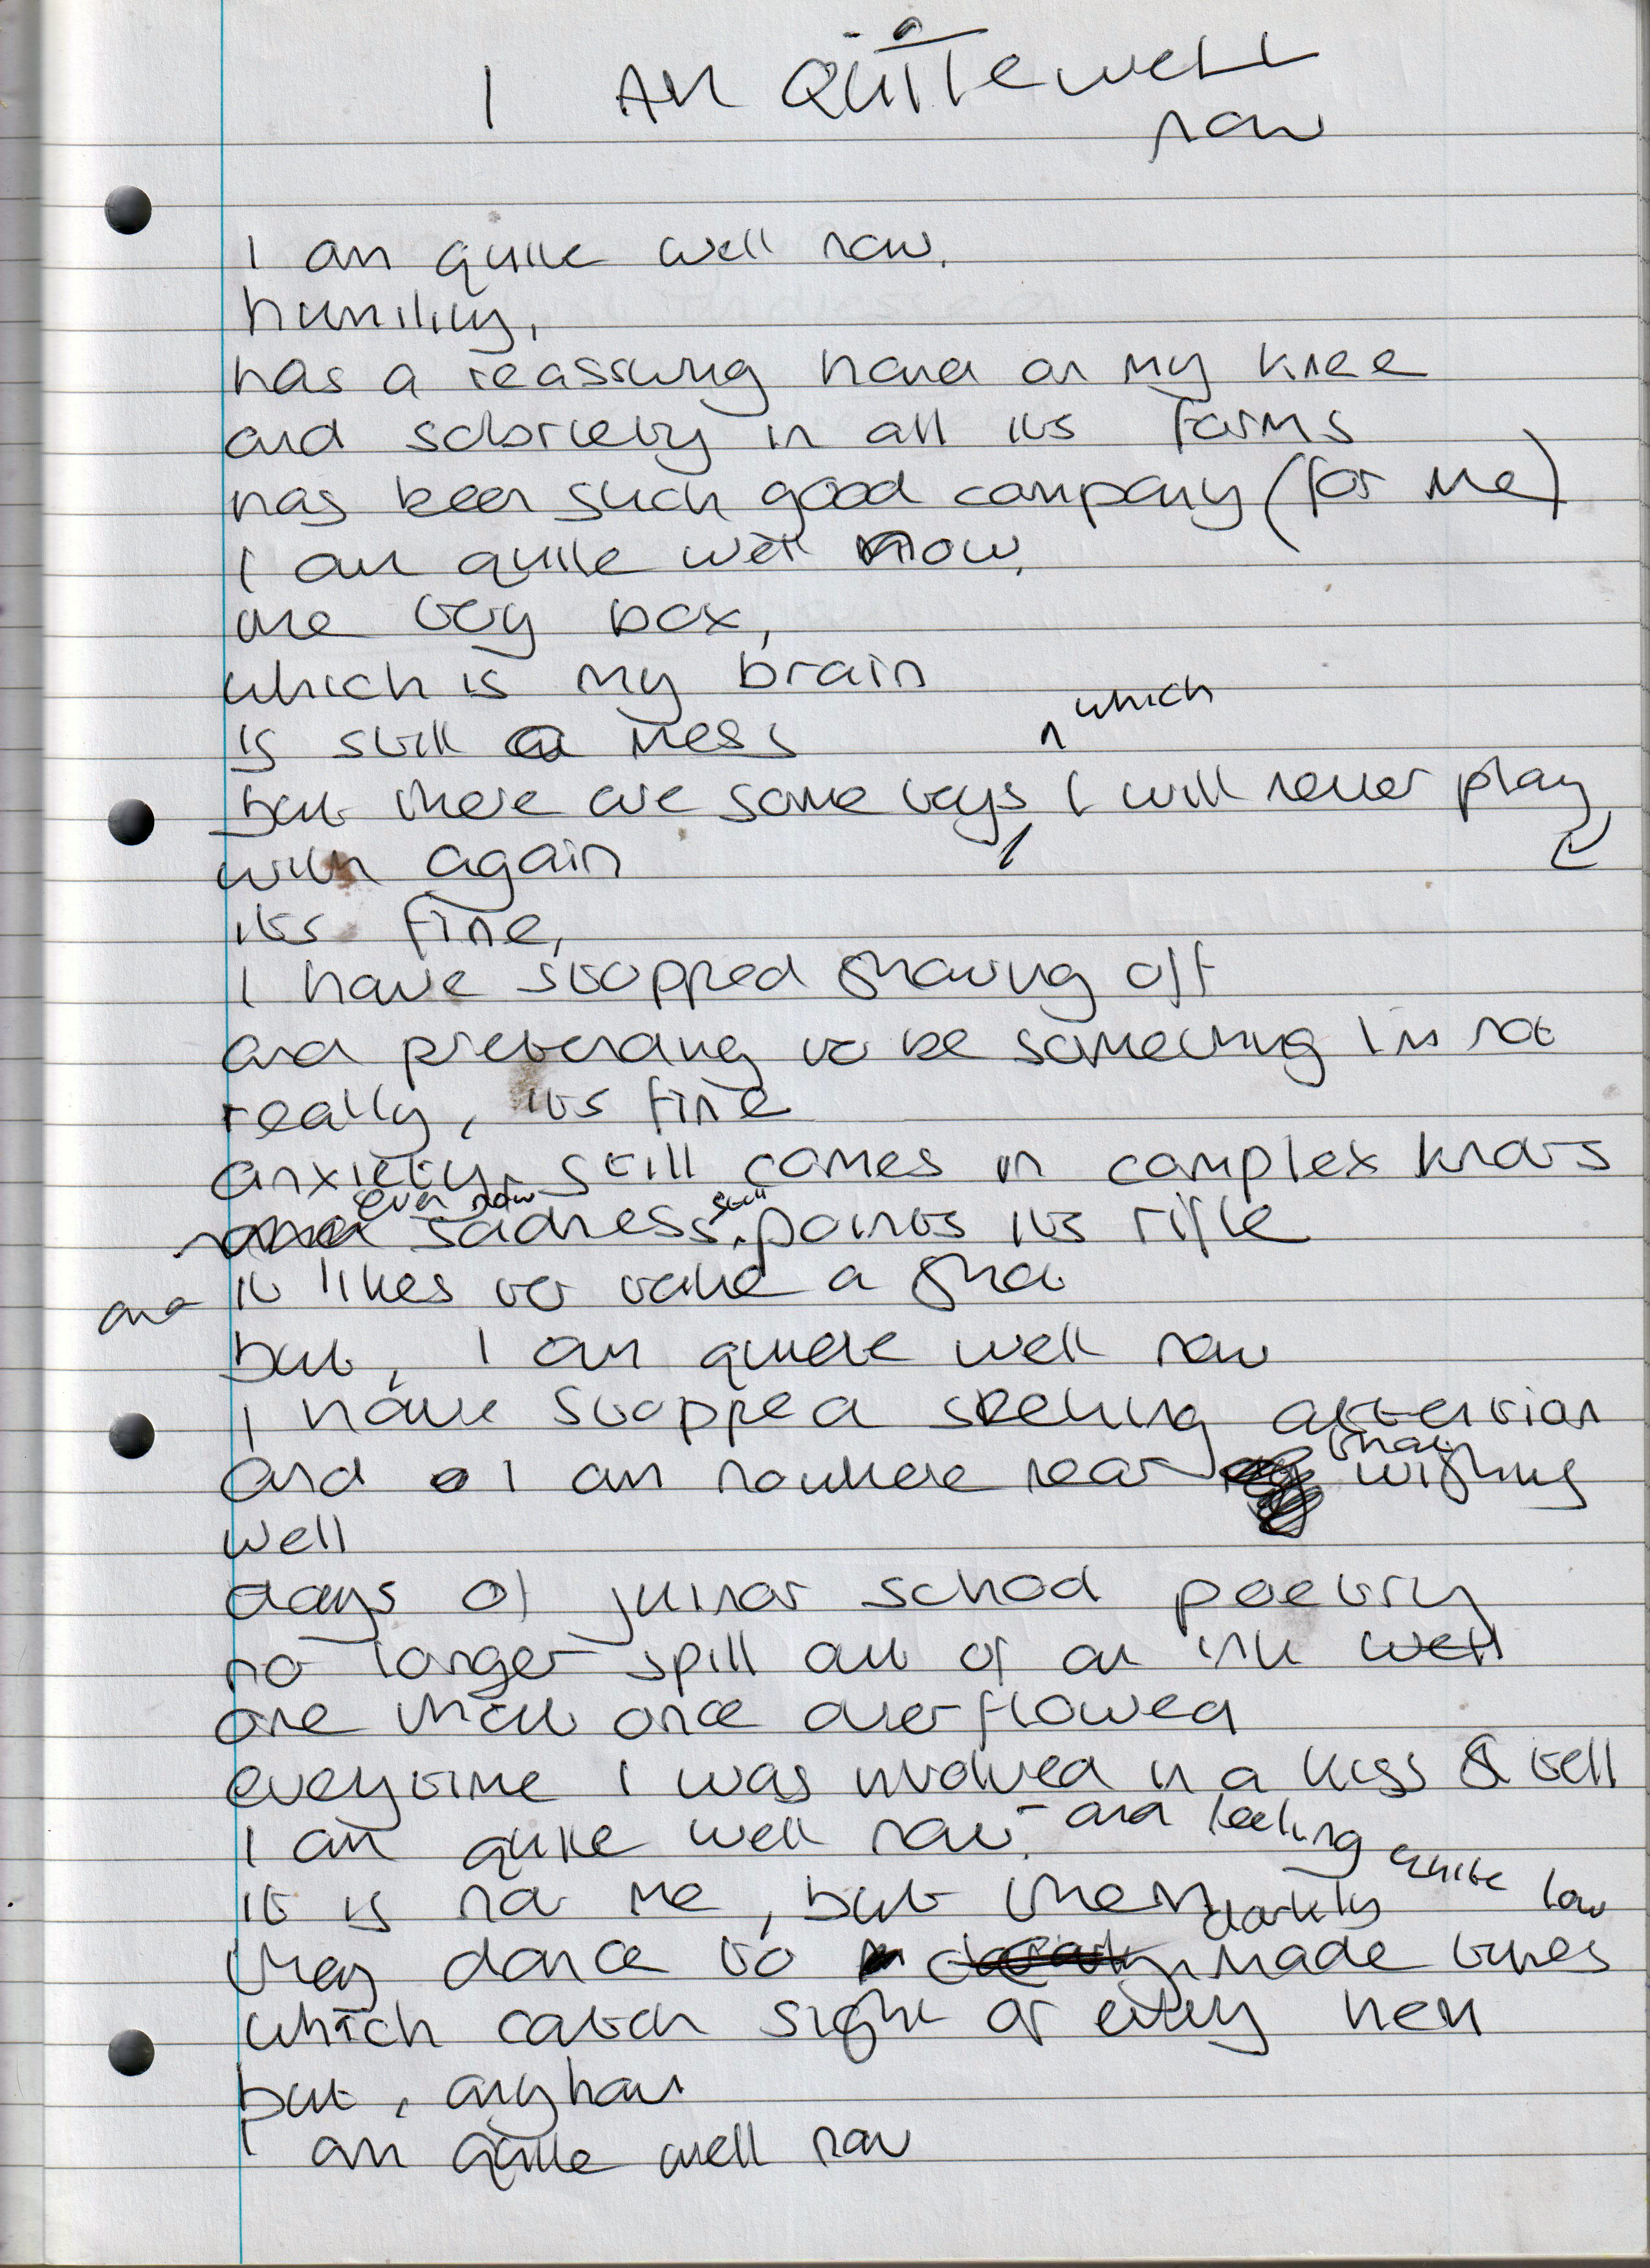 I AM QUITE WELL
now
I am quite well now.
humility,
has a reassuring hand on my knee
and sobriety in all its forms
has been such good company (for me)
I am quite well now,
the toy box,
which is my brain
is still a mess
which
but there are some toys I will never play
with again
its fine,
I have stopped showing off
and pretending to be something I'm not
really, its fine
anxiety still comes in complex knots
even now
still
sadness points its rifle
and it likes to take a shot
but, I am quite well now
I have stopped seeking attention
that
and I am nowhere near wishing
well
days of junior school poetry
no longer spill out of an ink well
one that once overflowed
everytime I was involved in a kiss & tell
I am quite well now - and feeling quite low
it is not me, but them
darkly
they dance to made tunes
which catch sight of every hell
but, anyhow
I am quite well now